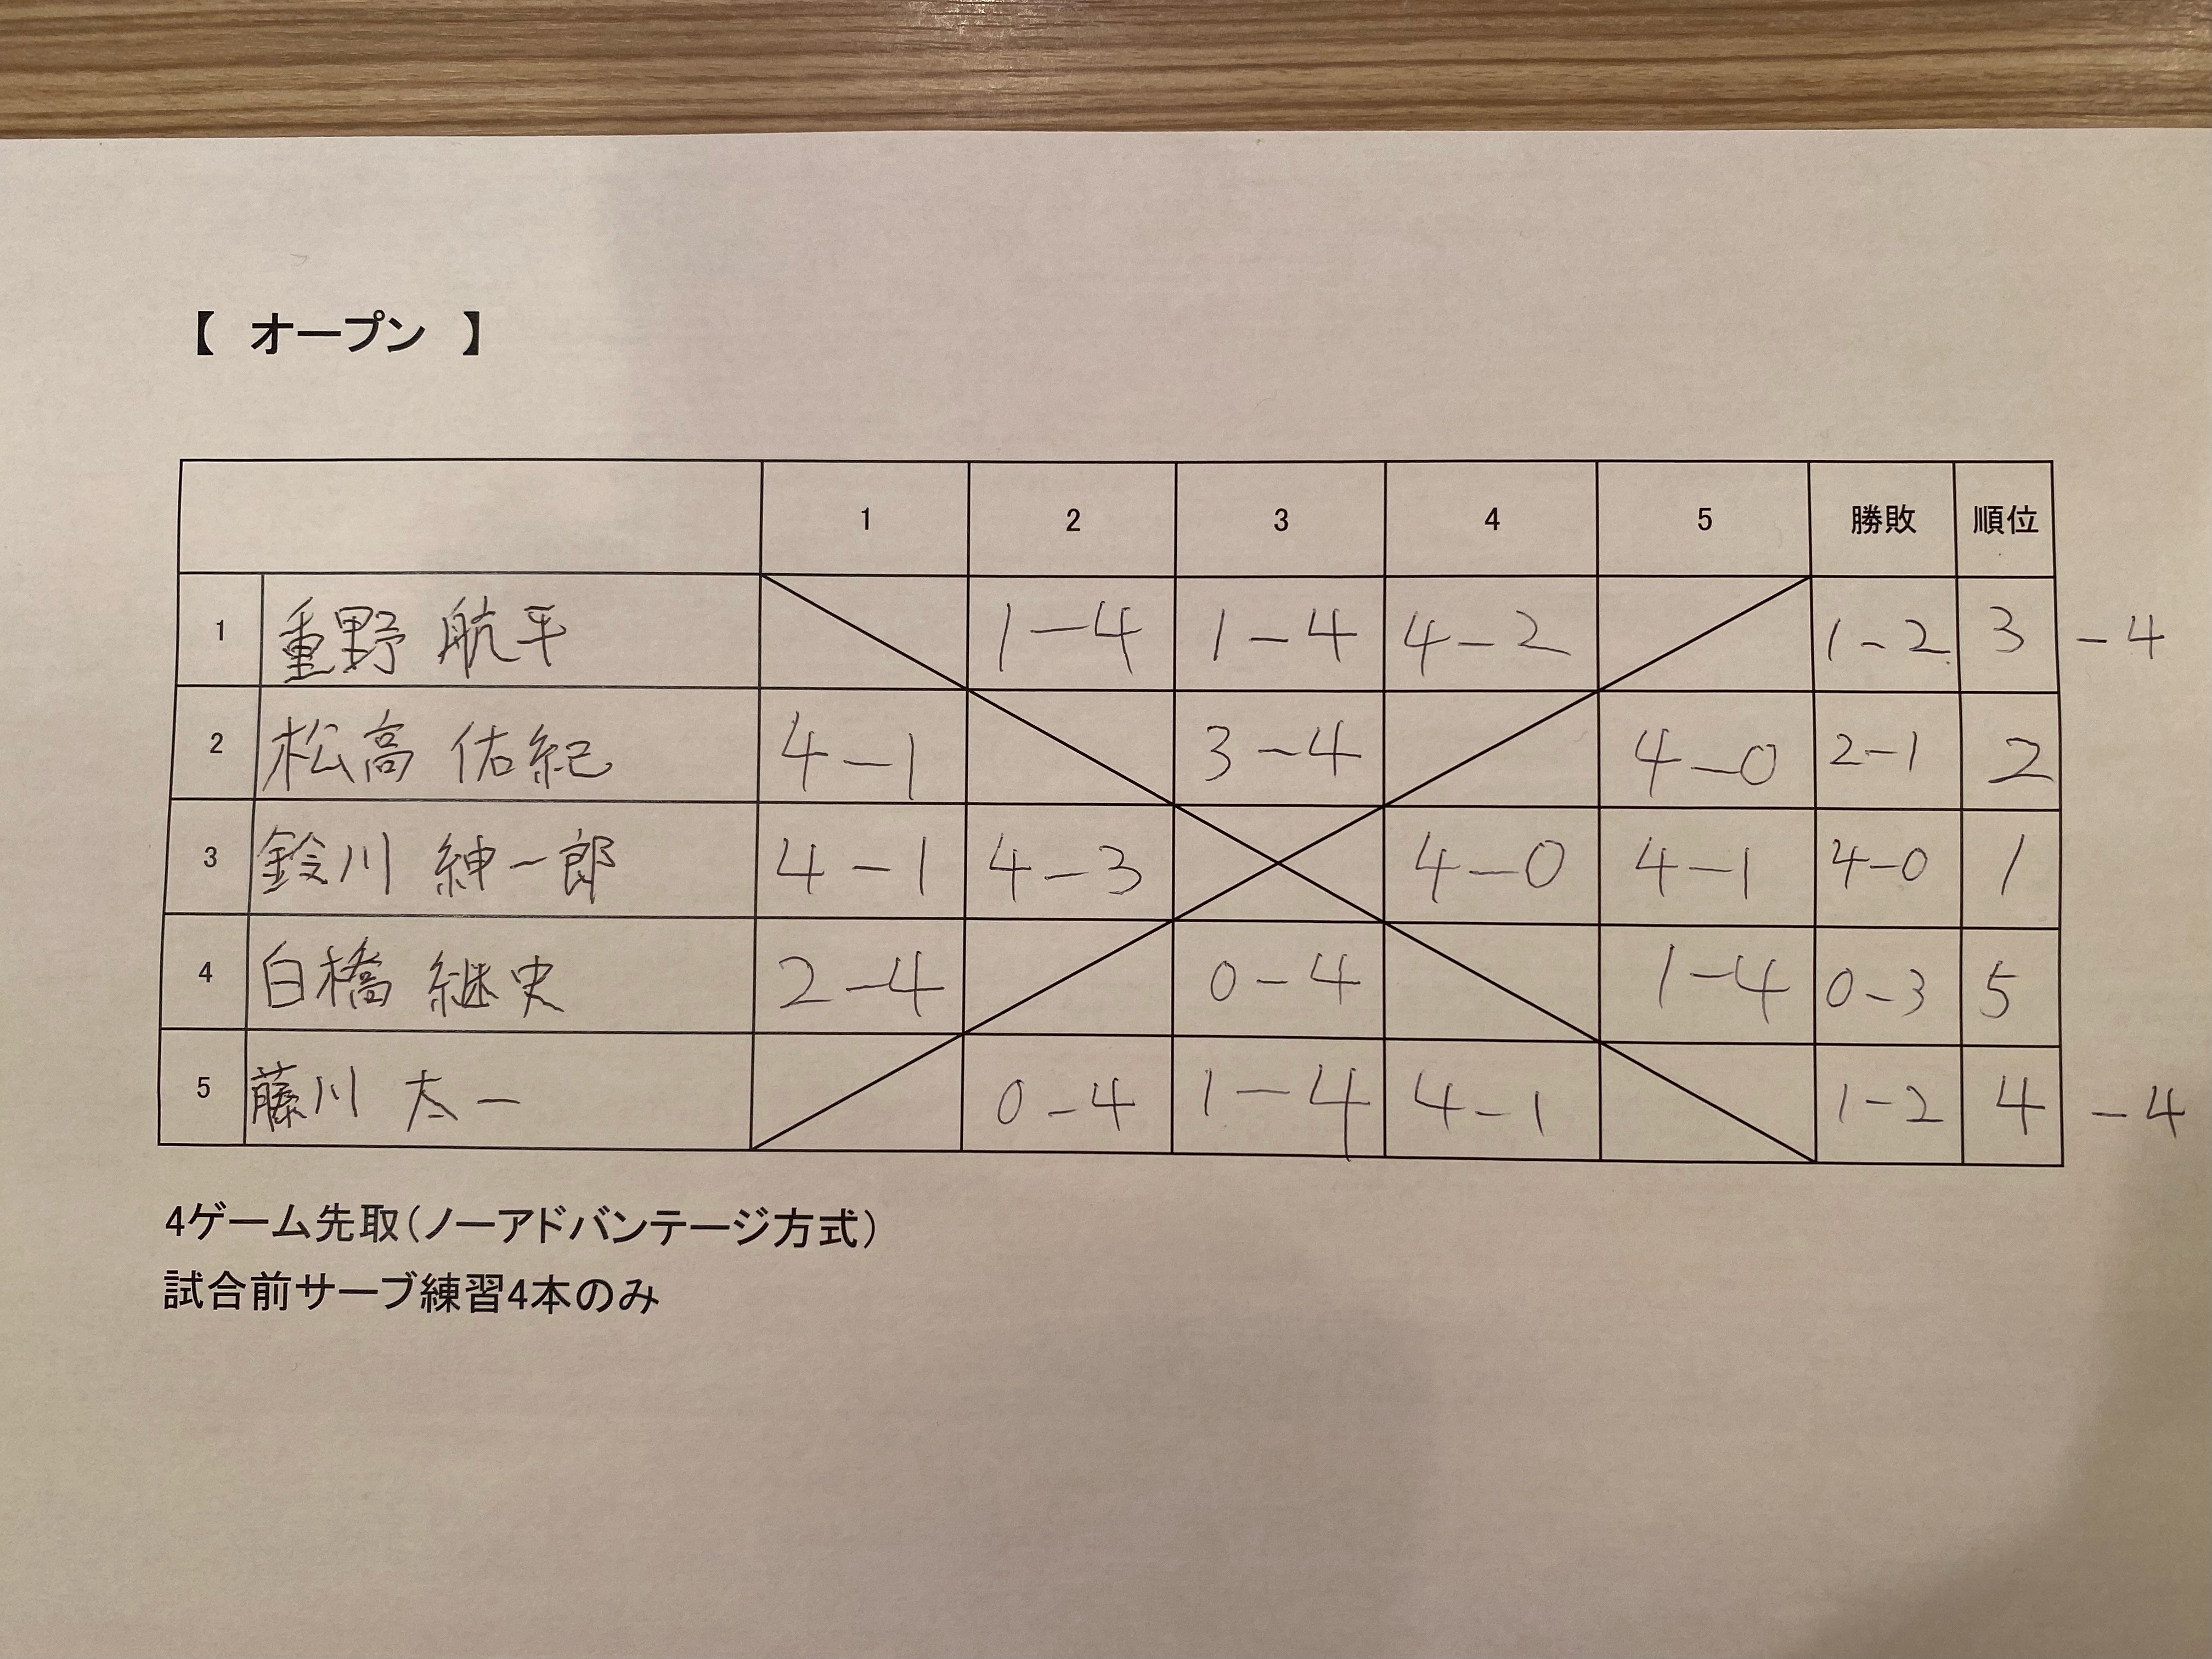 【 オープン 】
1 2 3 4 5 勝敗 順位
1 重野 航平 1-4 1-4 4-2 1-2 3 -4
2 松高 佑紀 4-1 3-4 4-0 2-1 2
3 鈴川 紳一郎 4-1 4-3 4-0 4-1 4-0 1
4 白橋 継史 2-4 0-4 1-4 0-3 5
5 藤川 太一 0-4 1-4 4-1 1-2 4 -4
4ゲーム先取(ノーアドバンテージ方式)
試合前サーブ練習4本のみ